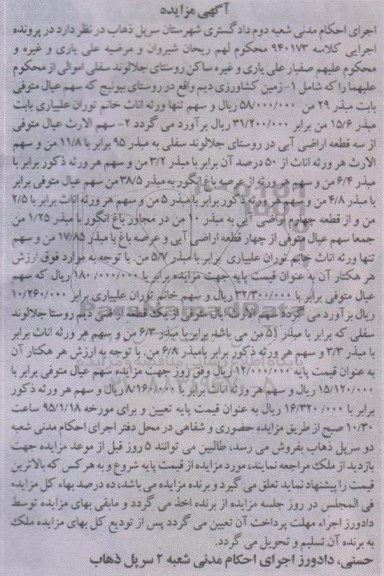 آگهی مزایده
اجرای احکام مدنی شعبه دوم دادگستری شهرستان سرپل ذهاب در نظر دارد در پرونده
اجرایی کلاسه ۹۴۰۱۷۳ محکوم لهم ریحان شیروان و مرضیه علی یاری و غیره و
محکوم علیهم صفیار علی یاری و غیره ساکن روستای جلالوند سفلی اموالی از محکوم
علیهما را که شامل ۱-زمین کشاورزی دیم واقع در روستای بیونیج که سهم عیال متوفی
بابت مبذر ۲۹ من ۵۸/۰۰۰/۰۰۰ ریال و سهم تنها ورثه اناث خانم توران علیاری بابت
مبذر ۱۵/۶ من برابر ۳۱/۲۰۰/۰۰۰ ریال برآورد می گردد ۲- سهم الارث عیال متوفی
از سه قطعه اراضی آبی در روستای جلالوند سفلی به مبذر ۹۵ برابر با ۱۱/۸ من و سهم
الارث هر ورثه اناث از ۵۰ درصد آن برابر با مبذر ۳/۲ من و سهم هر ورثه ذکور برابر با
مبذر ۶/۴ من و سهم هر ورثه از عرصه باغ انگور به مبذر ۳۸/۵ من سهم عیال متوفی برابر
با مبذر ۴/۸ من و سهم هر ورثه ذکور برابر با مبذر ۵ من و سهم هر ورثه اناث برابر با ۲/۵
من و از قطعه چهارم اراضی آبی به مبذر ۱۰ من در مجاور باغ انگور با مبذر ۱/۲۵ من
جمعا سهم عیال متوفی از چهار قطعه اراضی آبی و عرصه باغ با مبذر ۱۷/۸۵ من و سهم
تنها ورثه اناث خانم توران علیاری برابر با مبذر ۵/۷ من. با توجه به موارد فوق ارزش
هر هکتار آن به عنوان قیمت پایه جهت مزایده برابر با ۱۸۰/۰۰۰/۰۰۰ ریال که سهم
عیال متوفی برابر با ۳۲/۳۰۰/۰۰۰ ریال و سهم خانم توران علیاری برابر ۱۰/۲۶۰/۰۰۰
ریال برآورد می گردد سهم الارث عیال متوفی از یک قطعه اراضی دیم روستا جلالوند
سفلی که برابر با مبذر ۵۱ من می باشد برابر با مبذر ۶/۳ من و سهم هر ورثه اناث برابر
با مبذر ۳/۳ و سهم هر ورثه ذکور برابر بامبذر ۶/۸ من. با توجه به ارزش هر هکتار آن
به عنوان قیمت پایه ۱۲/۰۰۰/۰۰۰ ریال وفق روز جهت مزایده سهم عیال متوفی برابر با
۱۵/۱۲۰/۰۰۰ ریال و سهم هر ورثه اناث برابر با ۸/۱۶۰/۰۰۰ ریال و سهم هر ورثه ذکور
برابر با ۱۶/۳۲۰/۰۰۰ ریال به عنوان قیمت پایه تعیین و برای مورخه ۹۵/۱/۱۸ ساعت
۱۰/۳۰ صبح از طریق مزایده حضوری و شفاهی در محل دفتر اجرای احکام مدنی شعبه
دو سرپل ذهاب بفروش می رسد، طالبین می توانند ۵ روز قبل از موعد مزایده جهت
بازدید از ملک مراجعه نمایند، مورد مزایده از قیمت پایه شروع و به هر کس که بالاترین
قیمت را پیشنهاد نماید تعلق می گیرد و برنده مزایده می باشد، ده درصد بهاء کل مزایده
فی المجلس در روز جلسه مزایده از برنده اخذ می گردد و مابقی بهای مزایده توسط
دادورز اجراء مهلت پرداخت آن تعیین می گردد پس از تودیع کل بهای مزایده ملک
به برنده آن تسلیم و تحویل می گردد.
حسنی، دادورز اجرای احکام مدنی شعبه ۲ سرپل ذهاب